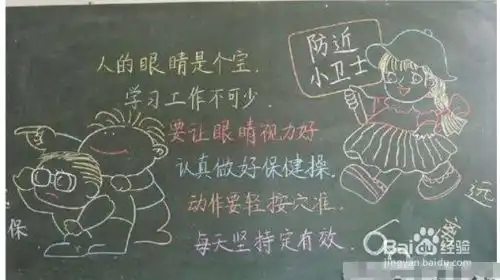 防近
小卫士
人的眼睛是个宝.
学习工作不可少.
要让眼睛视力好
认真做好保健操.
动作要轻按穴准.
每天坚持定有效.
保
远
Baidu经验
jingyan.baidu.com